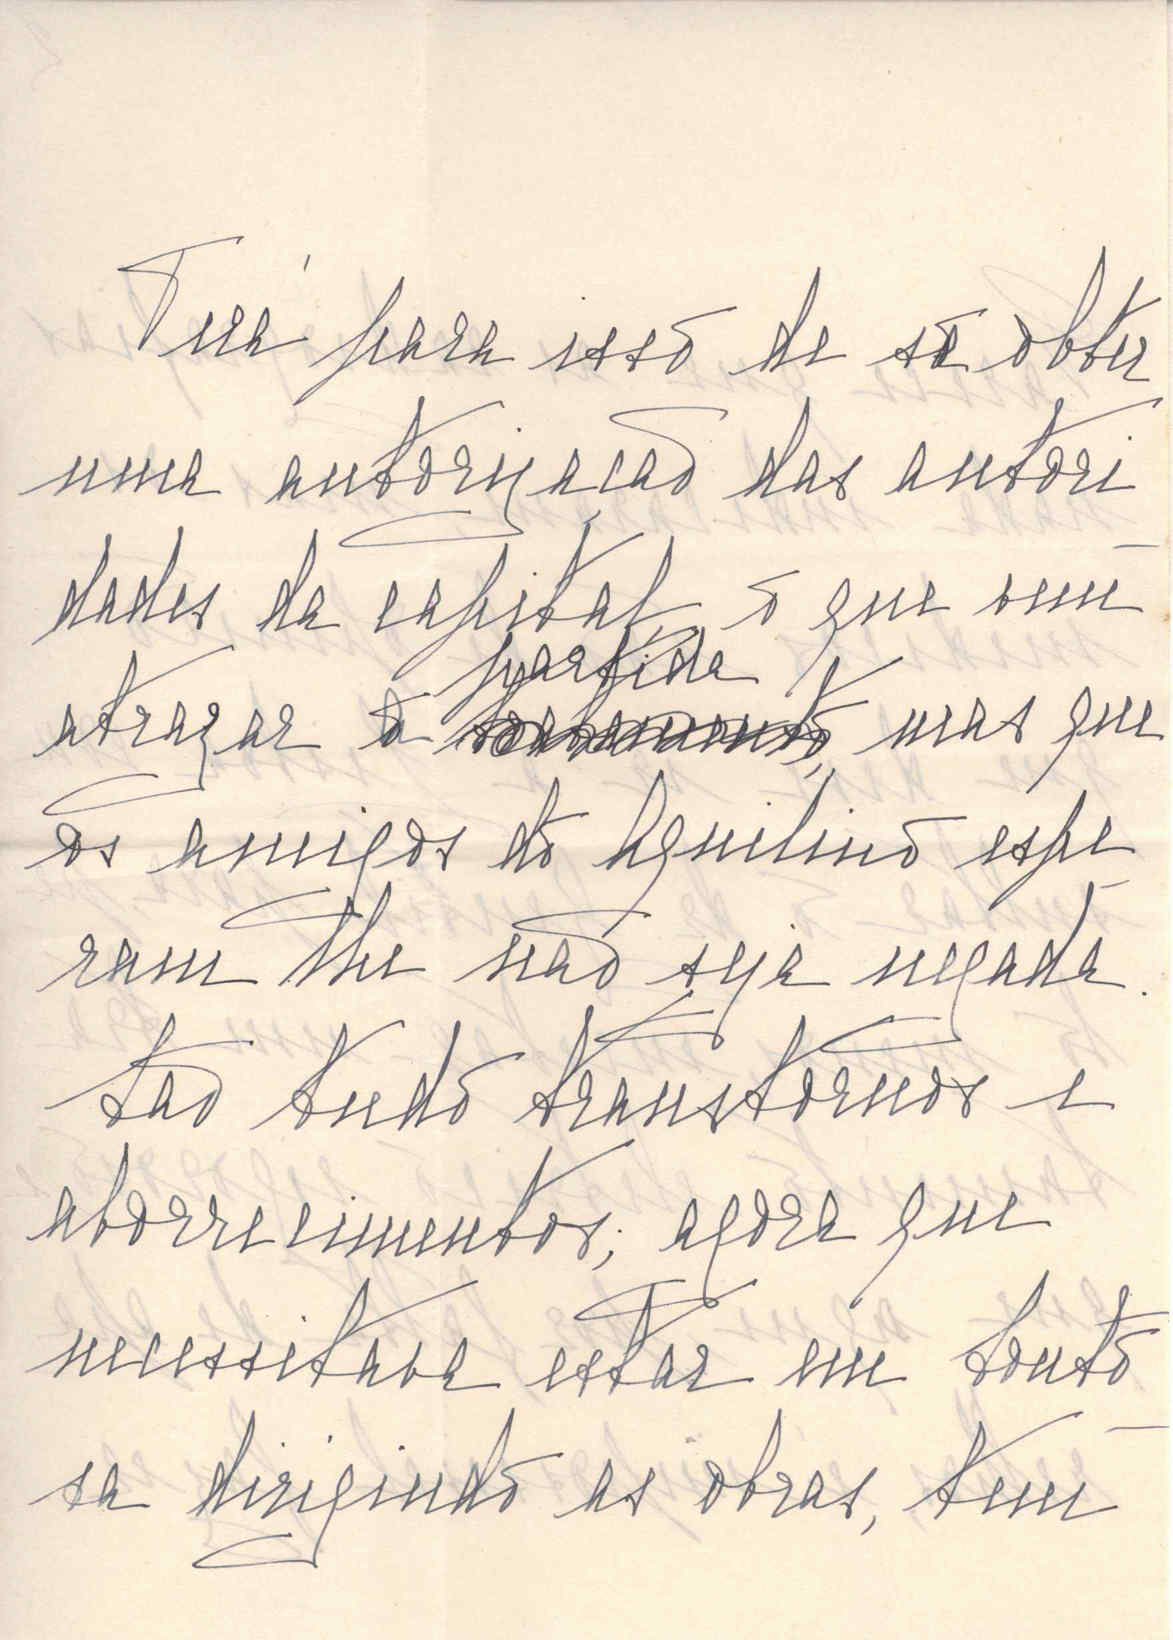 Terá para isso de se obter
uma autorização das autori
dades da capital, o que vem
partida
atrazar a mas que
os amigos do Aquilino espe
ram lhe não seja negada.
São tudo transtornos e
aborrecimentos; agora que
necessitava estar em Souto
sa dirigindo as obras, tem